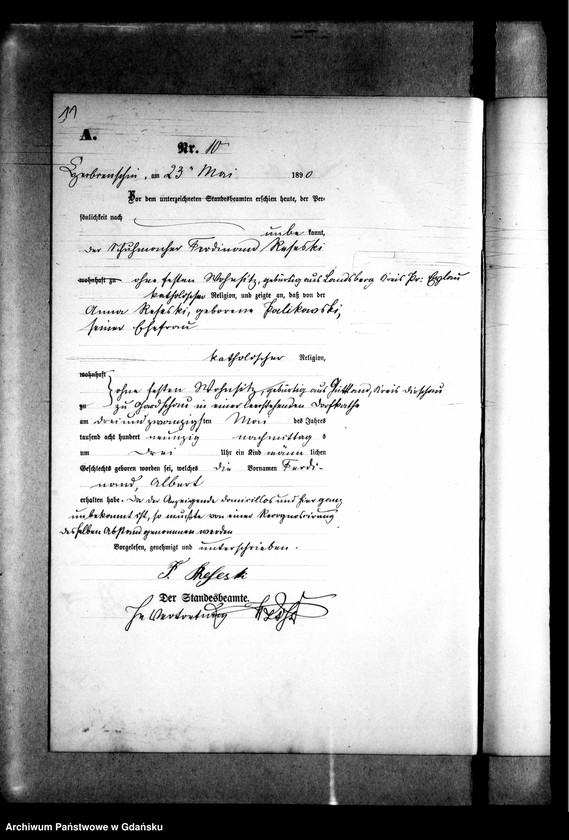 11
A.
Nr. 10
am 23 Mai 1890
Vor dem unterzeichneten Standesbeamten erschien heute, der Per-
sönlichkeit nach
unbekannt,
der Schuhmacher Ferdinand Reseski
wohnhaft zu ohne festen Wohnsitz, gebürtig aus Landsberg Kreis Pr: Eylau
katholischer Religion, und zeigte an, daß von der
Anna Reseski, geborene Palikowski,
seiner Ehefrau
katholischer Religion,
wohnhaft
ohne festen Wohnsitz, gebürtig aus Güttland, Kreis Dirschau
zu zu Gardschau in einer leerstehenden Dorfkathe
am dreiundzwanzigsten Mai des Jahres
tausend acht hundert neunzig nachmittags
um Drei Uhr ein Kind männlichen
Geschlechts geboren worden sei, welches die Vornamen Ferdi-
nand, Albert
erhalten habe. Da der Anzeigende domicillos und hier ganz
unbekannt ist, so mußte von einer Recognoscirung
desselben Abstand genommen werden
Vorgelesen, genehmigt und unterschrieben.
F. Reseski
Der Standesbeamte.
In Vertretung
Archiwum Państwowe w Gdańsku